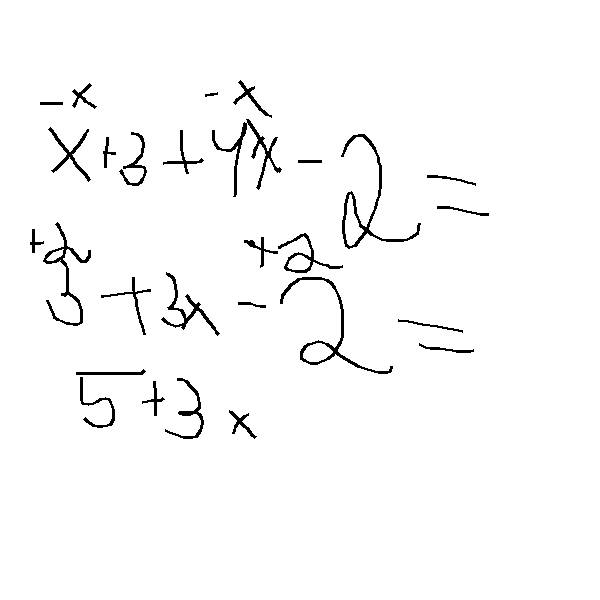 -x -x
x+3+4x-2=
+2 +2
3+3x-2=
5+3x